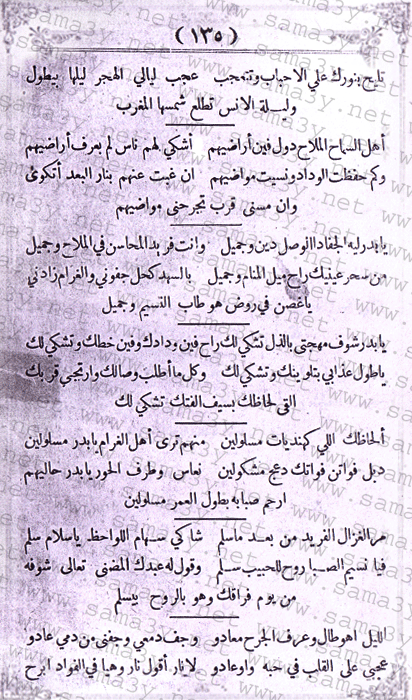 (١٣٥)
تايح بنورك علي الاحباب وتتعجب عجب ليالي الهجر ليلها يطول
وليلة الانس تطلع شمسها المغرب
أهل السماح الملاح دول فين أراضيهم أشكي لهم ناس لم يعرف أراضيهم
وكم حفظت الوداد ونسيت مواضيهم ان غبت عنهم بنار البعد أتكوى
وان مسنى قرب تجرحنى مواضيهم
يا بدر ليه الجفا دا الوصل دين وجميل وانت فريد المحاسن في الملاح وجميل
من سحر عينيك راح ميل المنام وجميل بالسهد كحل جفوني والغرام زادني
ياغصن في روض هو طاب النسيم وجميل
يا بدر شوف مهجتى بالذل تشكي لك راح فين ودادك وفين خطك وتشكي لك
ياطول عذابي بتلوينك وتشكي لك وكل ما أطلب وصالك وارتجي قربك
التى لحاظك بسيف الفتك تشكي لك
ألحاظك اللي كهنديات مسلولين منهم ترى أهل الغرام يا بدر مسلولين
دبل فواتن فواتك دعج مشكولين نعاس وطرف الحور يا بدر حاليهم
ارحم صبابه بطول العمر مسلولين
مر الغزال الفريد من بعد ماسلم شاكي سهام اللواحظ ياسلام سلم
فيا نسيم الصبا روح للحبيب سلم وقول له عبدك المضنى تعالى شوفه
من يوم فراقك وهو بالروح بيسلم
الليل اهو طال وعرف الجرح معادو وجف دمعي وجفنى من دمي عادو
عجبي على القلب في حبه واوعادو لا نار أقول نار وهيا في الفواد ابرح
www.sama3y.net